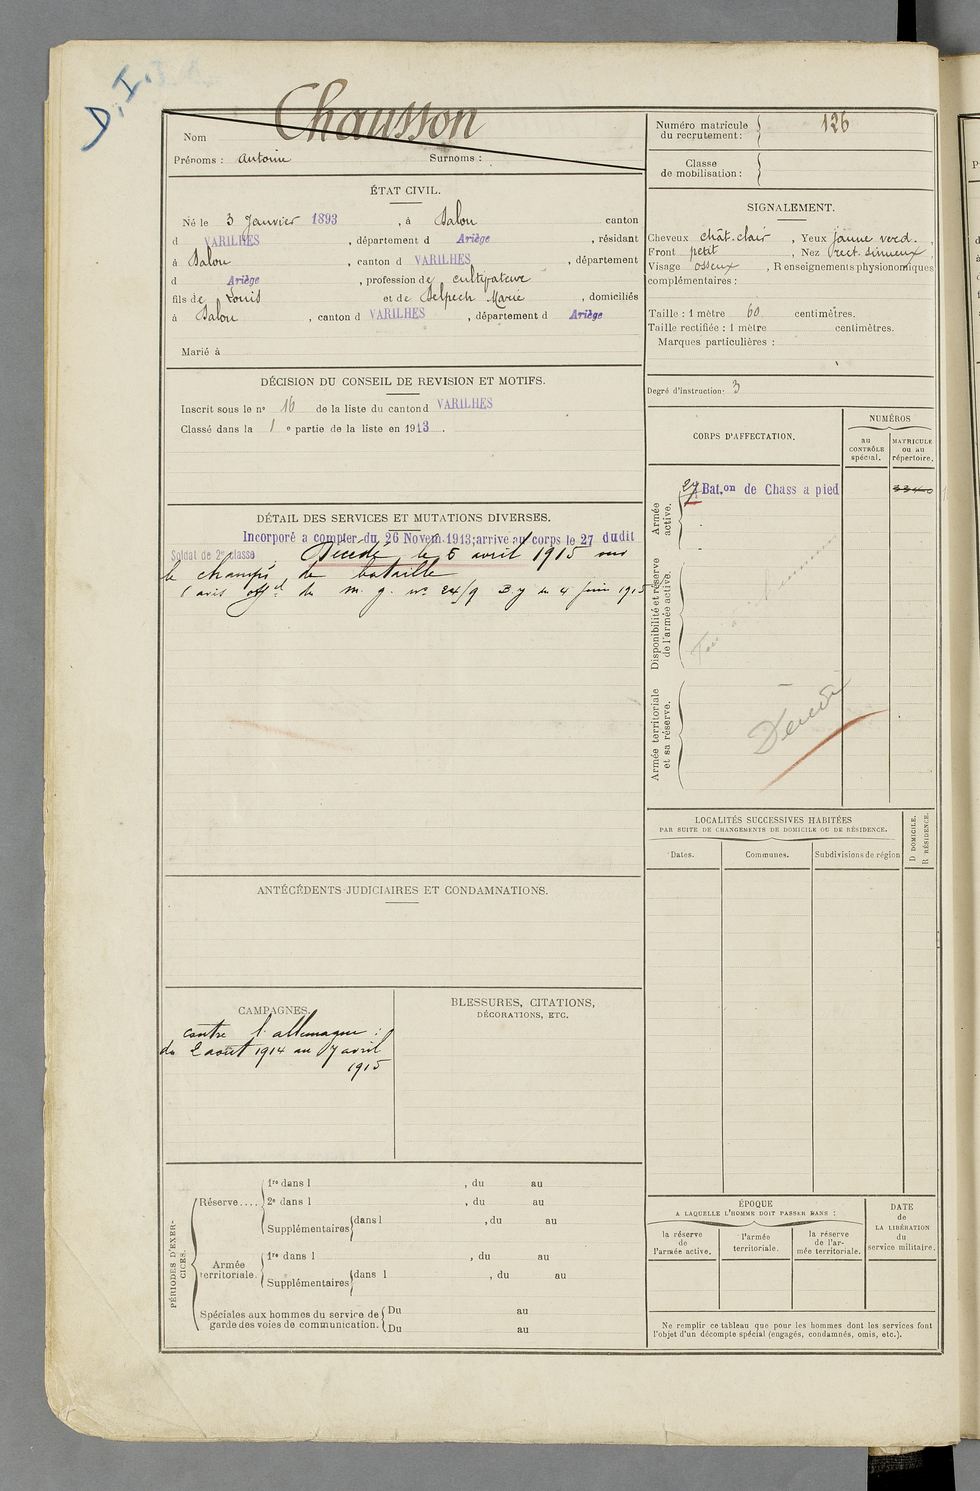 D.I.
Chausson
Nom
Prénoms : Antoine Surnoms :
Numéro matricule du recrutement : 126
Classe de mobilisation :
ÉTAT CIVIL.
Né le 3 Janvier 1893, à Dalou canton
d VARILHES, département d Ariège, résidant
à Dalou, canton d VARILHES, département
d Ariège, profession de cultivateur
fils de Louis et de Delpech Marie, domiciliés
à Dalou, canton d VARILHES, département d Ariège
Marié à
SIGNALEMENT.
Cheveux chât. clair, Yeux jaune verd.,
Front petit, Nez rect. sinueux,
Visage osseux, Renseignements physionomiques
complémentaires :
Taille : 1 mètre 60 centimètres.
Taille rectifiée : 1 mètre centimètres.
Marques particulières :
Degré d'instruction : 3
DÉCISION DU CONSEIL DE REVISION ET MOTIFS.
Inscrit sous le nº 16 de la liste du canton d VARILHES
Classé dans la 1 e partie de la liste en 1913.
DÉTAIL DES SERVICES ET MUTATIONS DIVERSES.
Incorporé a compter du 26 Novem. 1913; arrive au corps le 27 dudit
Soldat de 2e classe Décédé le 5 avril 1915 sur
le champs de bataille
(avis offel de m. g. nº 24/9 3 y du 4 juin 1915
CORPS D'AFFECTATION.
NUMÉROS
au CONTRÔLE spécial.
MATRICULE ou au répertoire.
Armée active.
27 Bat.on de Chass a pied
3340
Disponibilité et réserve de l'armée active.
Armée territoriale et sa réserve.
Décédé
LOCALITÉS SUCCESSIVES HABITÉES
PAR SUITE DE CHANGEMENTS DE DOMICILE OU DE RÉSIDENCE.
Dates.
Communes.
Subdivisions de région
D DOMICILE.
R RÉSIDENCE.
ANTÉCÉDENTS JUDICIAIRES ET CONDAMNATIONS.
CAMPAGNES.
contre l'allemagne :
du 2 août 1914 au 7 avril
1915
BLESSURES, CITATIONS,
DÉCORATIONS, ETC.
PÉRIODES D'EXERCICES.
Réserve....
1re dans l , du au
2e dans l , du au
Supplémentaires dans l , du au
Armée territoriale.
1re dans l , du au
Supplémentaires dans l , du au
Spéciales aux hommes du service de
garde des voies de communication.
Du au
Du au
ÉPOQUE
A LAQUELLE L'HOMME DOIT PASSER DANS :
la réserve de l'armée active.
l'armée territoriale.
la réserve de l'armée territoriale.
DATE de LA LIBÉRATION du service militaire.
Ne remplir ce tableau que pour les hommes dont les services font
l'objet d'un décompte spécial (engagés, condamnés, omis, etc.).